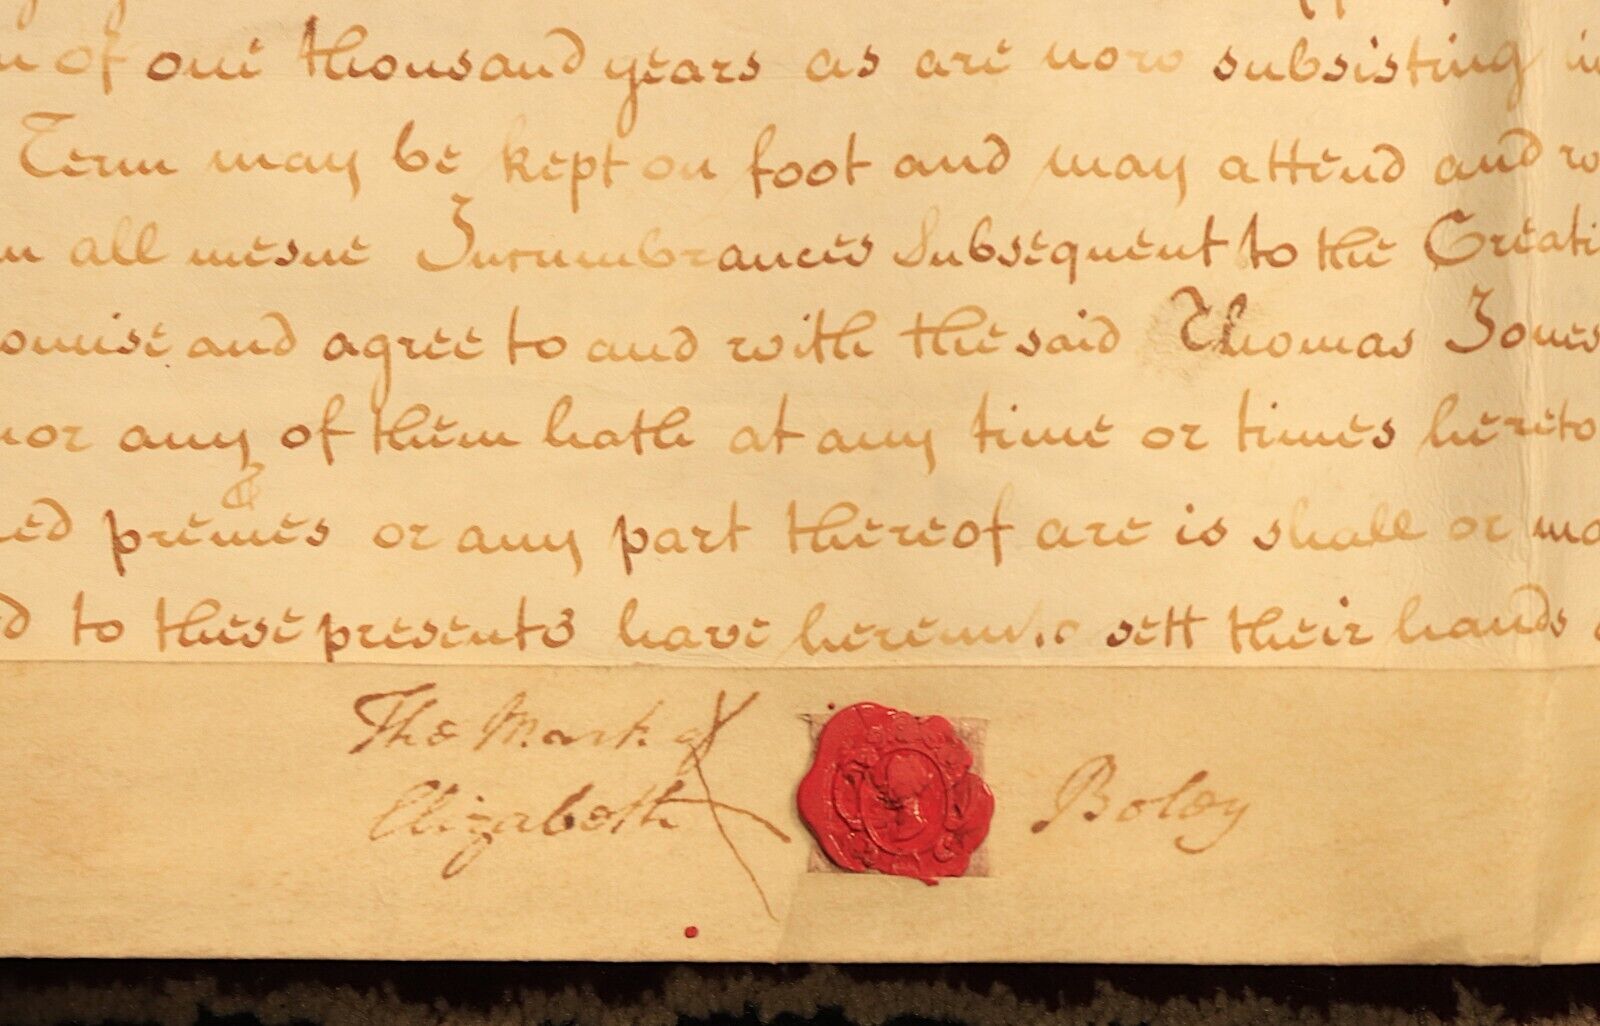 of one thousand years as are now subsisting in
Term may be kept on foot and may attend and
all mesne Incumbrances Subsequent to the Creati
omise and agree to and with the said Thomas Jones
nor any of them hath at any time or times hereto
ed premes or any part thereof are is shall or ma
d to these presents have hereunto sett their hands
The Mark of
Elizabeth X Boley